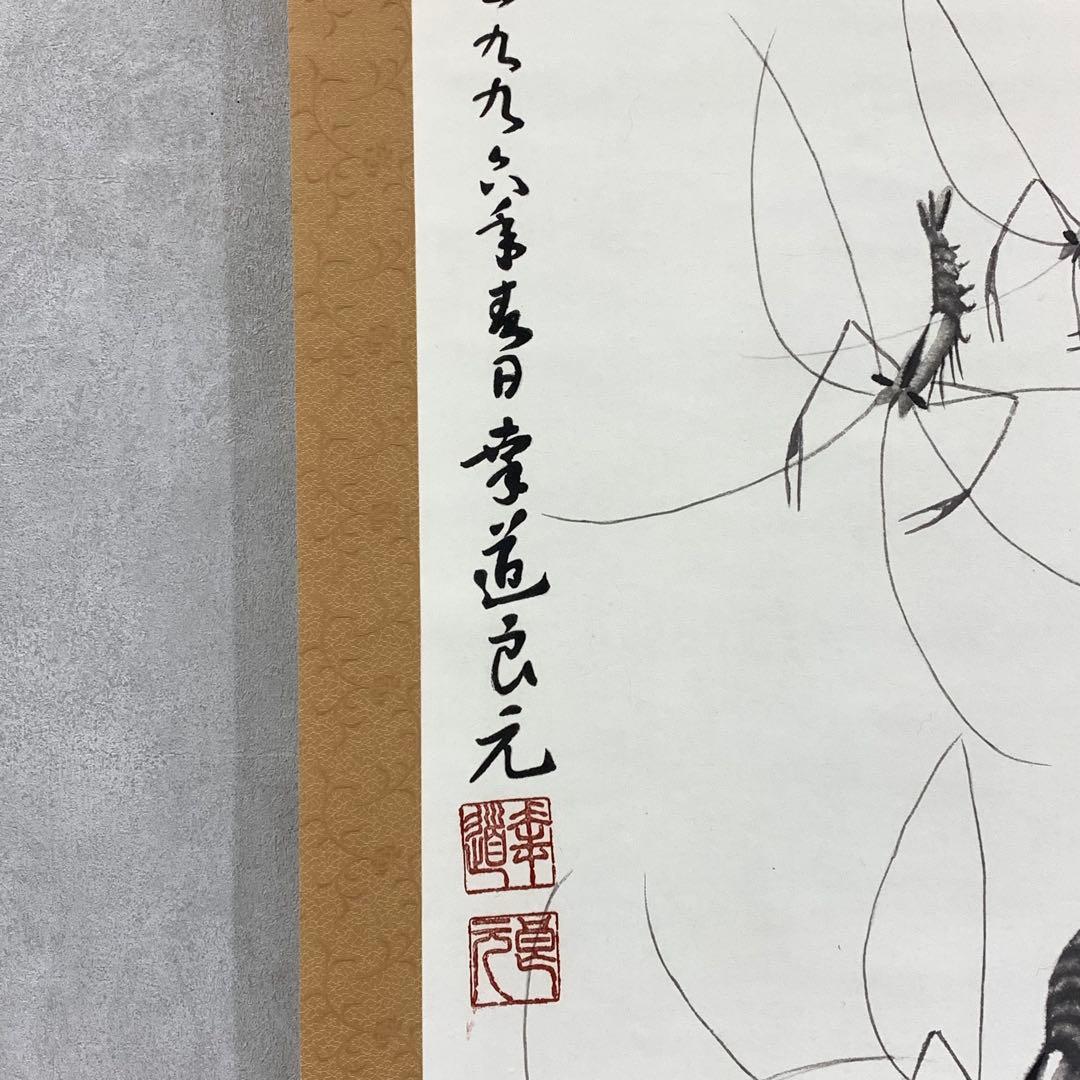 九九六年春日幸道良元
幸道
良元